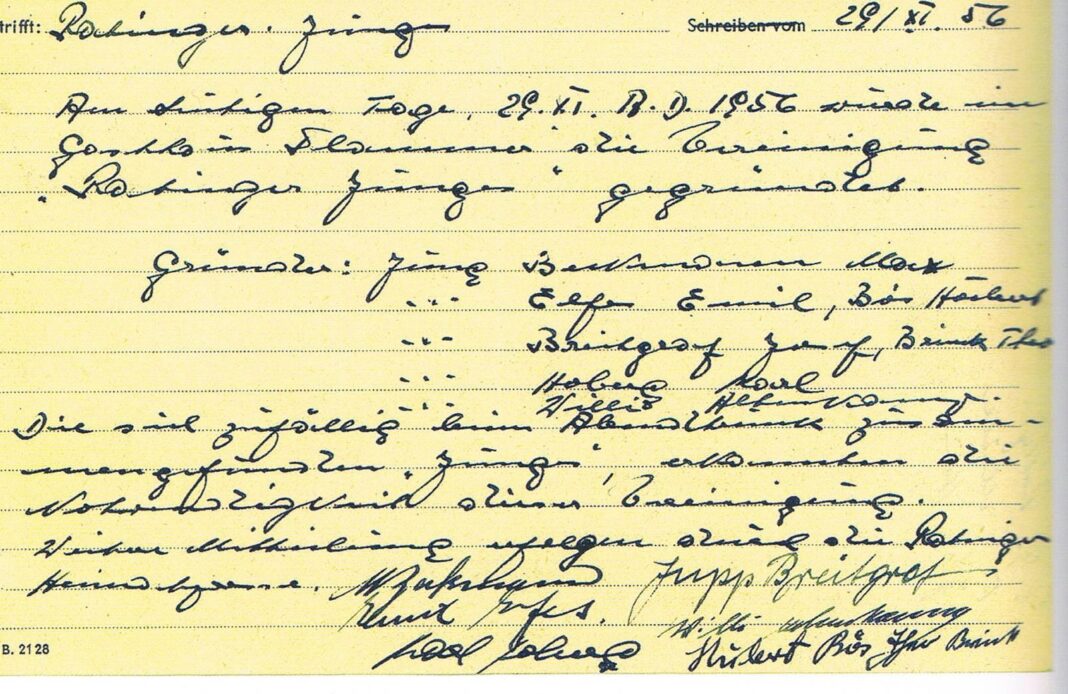 trifft: Ratinger Jung Schreiben vom 29/XI. 56
Am heutigen Tage, 29. XI. A.D. 1956 wurde im
Gasthaus Flammer die Vereinigung
„Ratinger Junges" gegründet.
Gründer: Jung Beckmann Max
-"- Elfes Emil, Bös Hubert
-"- Breitgraf Josef, Brink Theo
-"- Hoberg Karl
-"- Willi Altenkamp.
Die sich zufällig beim Abendtrunk zusam-
mengefunden „Junges", erkannten die
Notwendigkeit dieser Vereinigung.
Weitere Mitteilung erfolgen durch die Ratinger
Heimatpresse. M Beckmann Jupp Breitgraf
Emil Elfes. Willi Altenkamp
Karl Hoberg Hubert Bös Theo Brink
B. 2128